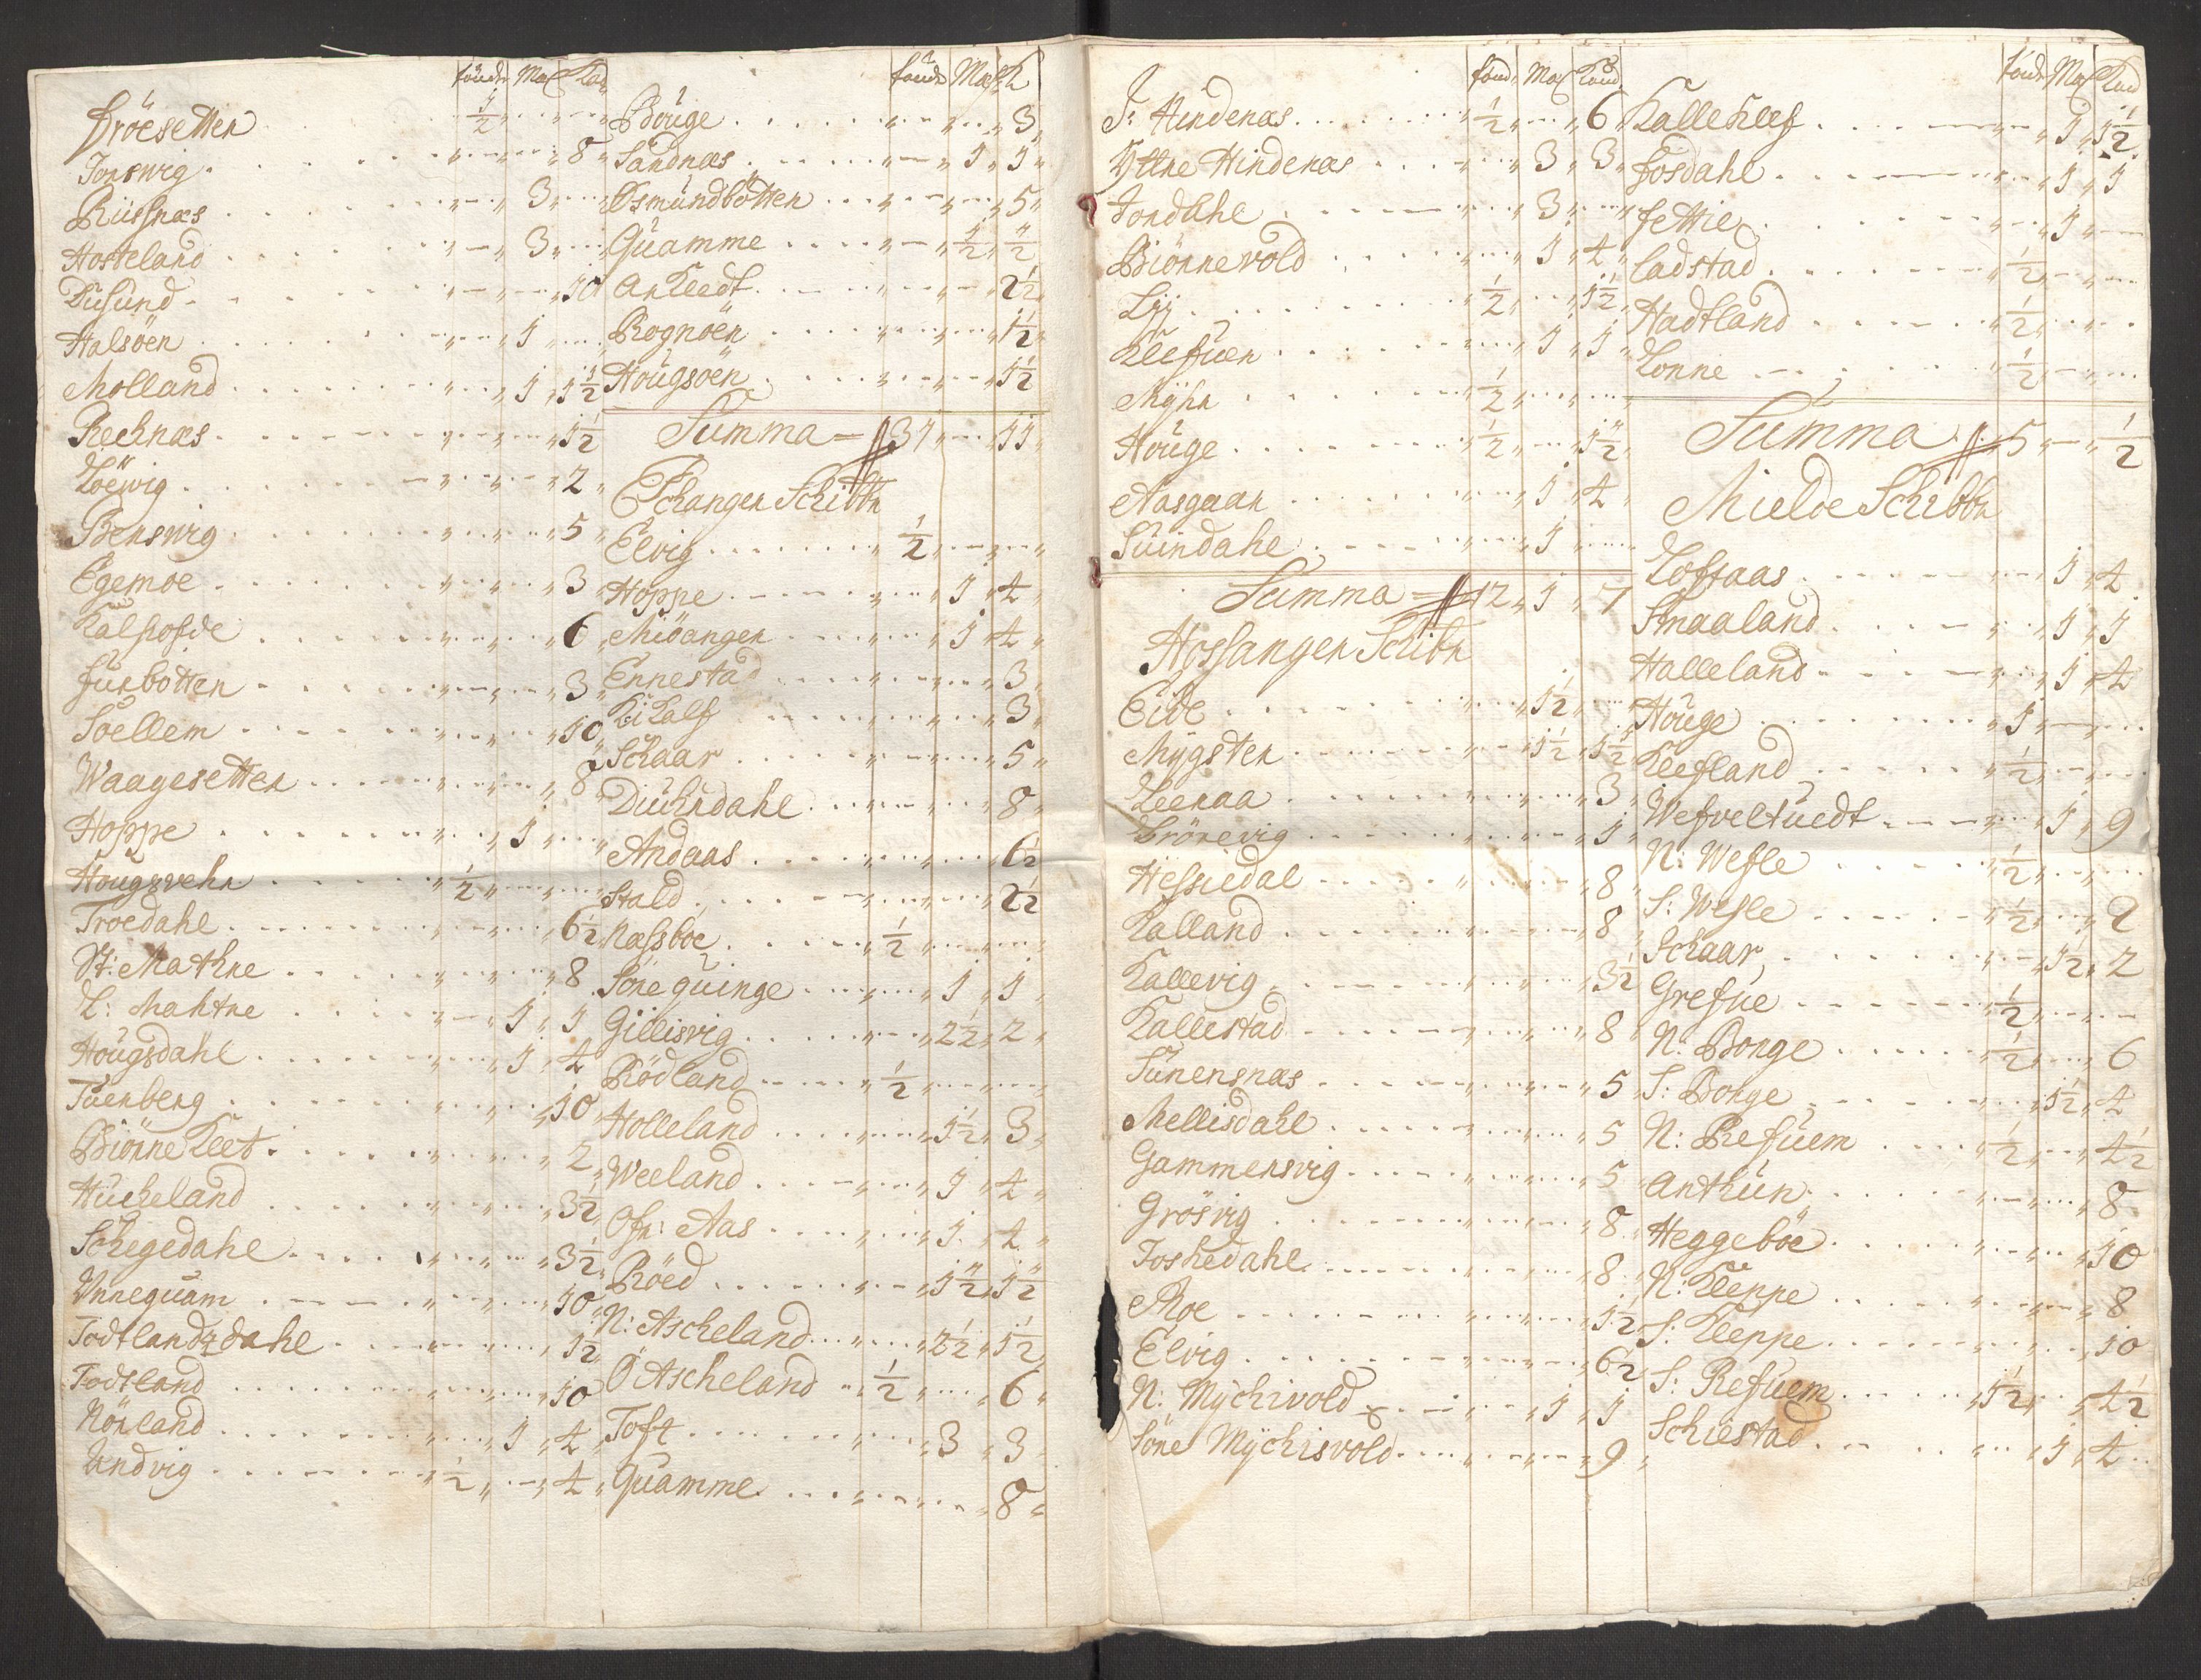 tönde Mæ Kan
Fröesetter ½
Jonswig 8
Riisnæs 3
Hosteland 3
Dusund 10
Halsöen 1
Molland 1 1½
Recknæs 1½
Löewig 2
Benswig 5
Egemoe 3
Kalhofde 6
Furbotten 3
Söellem 10
Waagesetter 8
Hoppe 1
Hougzvehr ½
Troedahl 6½
St: Mathre 8
L: Mahtre 1 1
Hougsdahl 1 4
Tuenberg 10
Biönne Keet 2
Hucheland 3½
Schegedahl 3½
Unneguam 10
Todtlandzdahl 1½
Todtland 10
Nörland 1 4
Undvig ½ 4
tönde Mæ K
Böuge 3
Sandnæs 1 1
Osmundbötten 5
Quamme ½ ½
Arkledt 2½
Rognöen 1½
Hougsoen 1½
Summa 37 11
Echanger Schibbr
Elvig ½
Hoppe 1 4
Miöanger 1 4
Ennestad 3
Kikalf 3
Schaar 5
Diuhrdahl 8
Andaas 6½
Stald 2½
Næssböe ½
Söre Quinge 1 1
Gillisvig 2½ 2
Rödland ½
Holleland 1½ 3
Weeland 1 4
Ofr: Aas 1 4
Röed 1½ 1½
N: Ascheland 2½ 1½
O Ascheland ½ 6
Toft 3 3
Quamme 8
tönd Mæ Kand
I: Hindenæs ½ 6
Yttre Hindenæs 3 3
Jordahl 3
Biönnevold 1 4
Lÿ ½ 1½
Klefuer 1 1
Mÿhr ½
Houge ½ 1½
Aasgaar 1 4
Suindahl 1
Summa 12 1 7
Hossanger Schibr
Eide 1½
Mÿgster 1½ 1½
Leeraa 3
Grönevig 1
Hessiedal 8
Kalland 8
Kallevig 3½
Kallestad 8
Tunensnæs 5
Mellisdahl 5
Gammersvig 5
Grösvig 8
Toshedahl 8
Moe 1½
Elvig 6½
N: Mÿchivold 1 1
Söre Mÿchisvold 9
tönde Mæ Kand
Kallekleef 1 1½
Fosdahl 1 1
Fettie 1
Ladstad ½
Hadtland ½
Lonne ½
Summa 5 ½
Mielde Schibbr
Loftaas 1 4
Smaaland 1 1
Halleland 1 4
Houge 1
Klefland ½
Wefveltuedt 1 9
N: Wefle ½
S: Wefle ½ 2
Schaar 1½ 2
Grefue ½
N: Borge ½ 6
S: Borge 1½ 4
N: Refuem ½ 4½
Anthun 8
Heggeböe 10
N: Kleppe 8
S: Kleppe 10
S: Refuem 1½ 4½
Schiestad 1 4